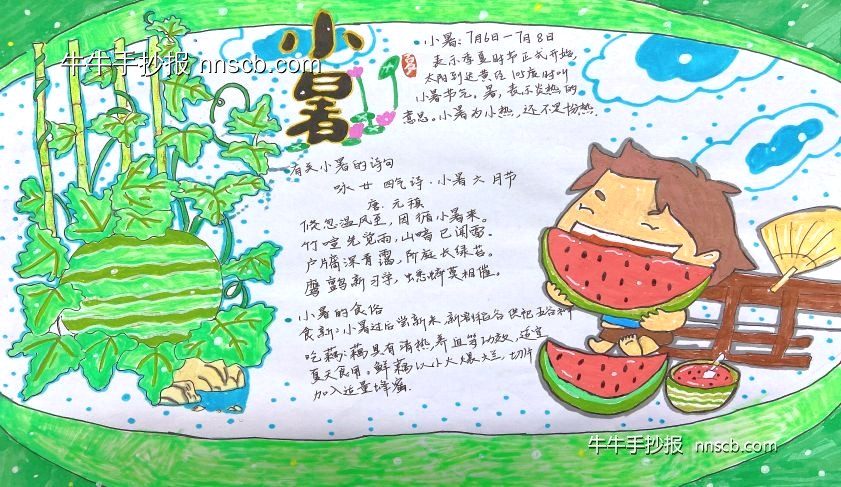 牛牛手抄报 nnscb.com
小暑
小暑：7月6日—7月8日
表示季夏时节正式开始,
太阳到达黄经105度时叫
小暑节气。暑，表示炎热的
意思。小暑为小热，还不是十分热.
有关小暑的诗句
咏廿四气诗·小暑六月节
唐.元稹
倏忽温风至，因循小暑来。
竹喧先觉雨，山暗已闻雷。
户牖深青霭，阶庭长绿苔。
鹰鹯新习学，蟋蟀莫相催。
小暑的食俗
食新：小暑过后尝新米，新割稻谷供祀五谷
吃藕：藕具有清热，养血等功效，适宜
夏天食用。鲜藕以小火煨烂，切片
加入适量蜂蜜.
牛牛手抄报 nnscb.com